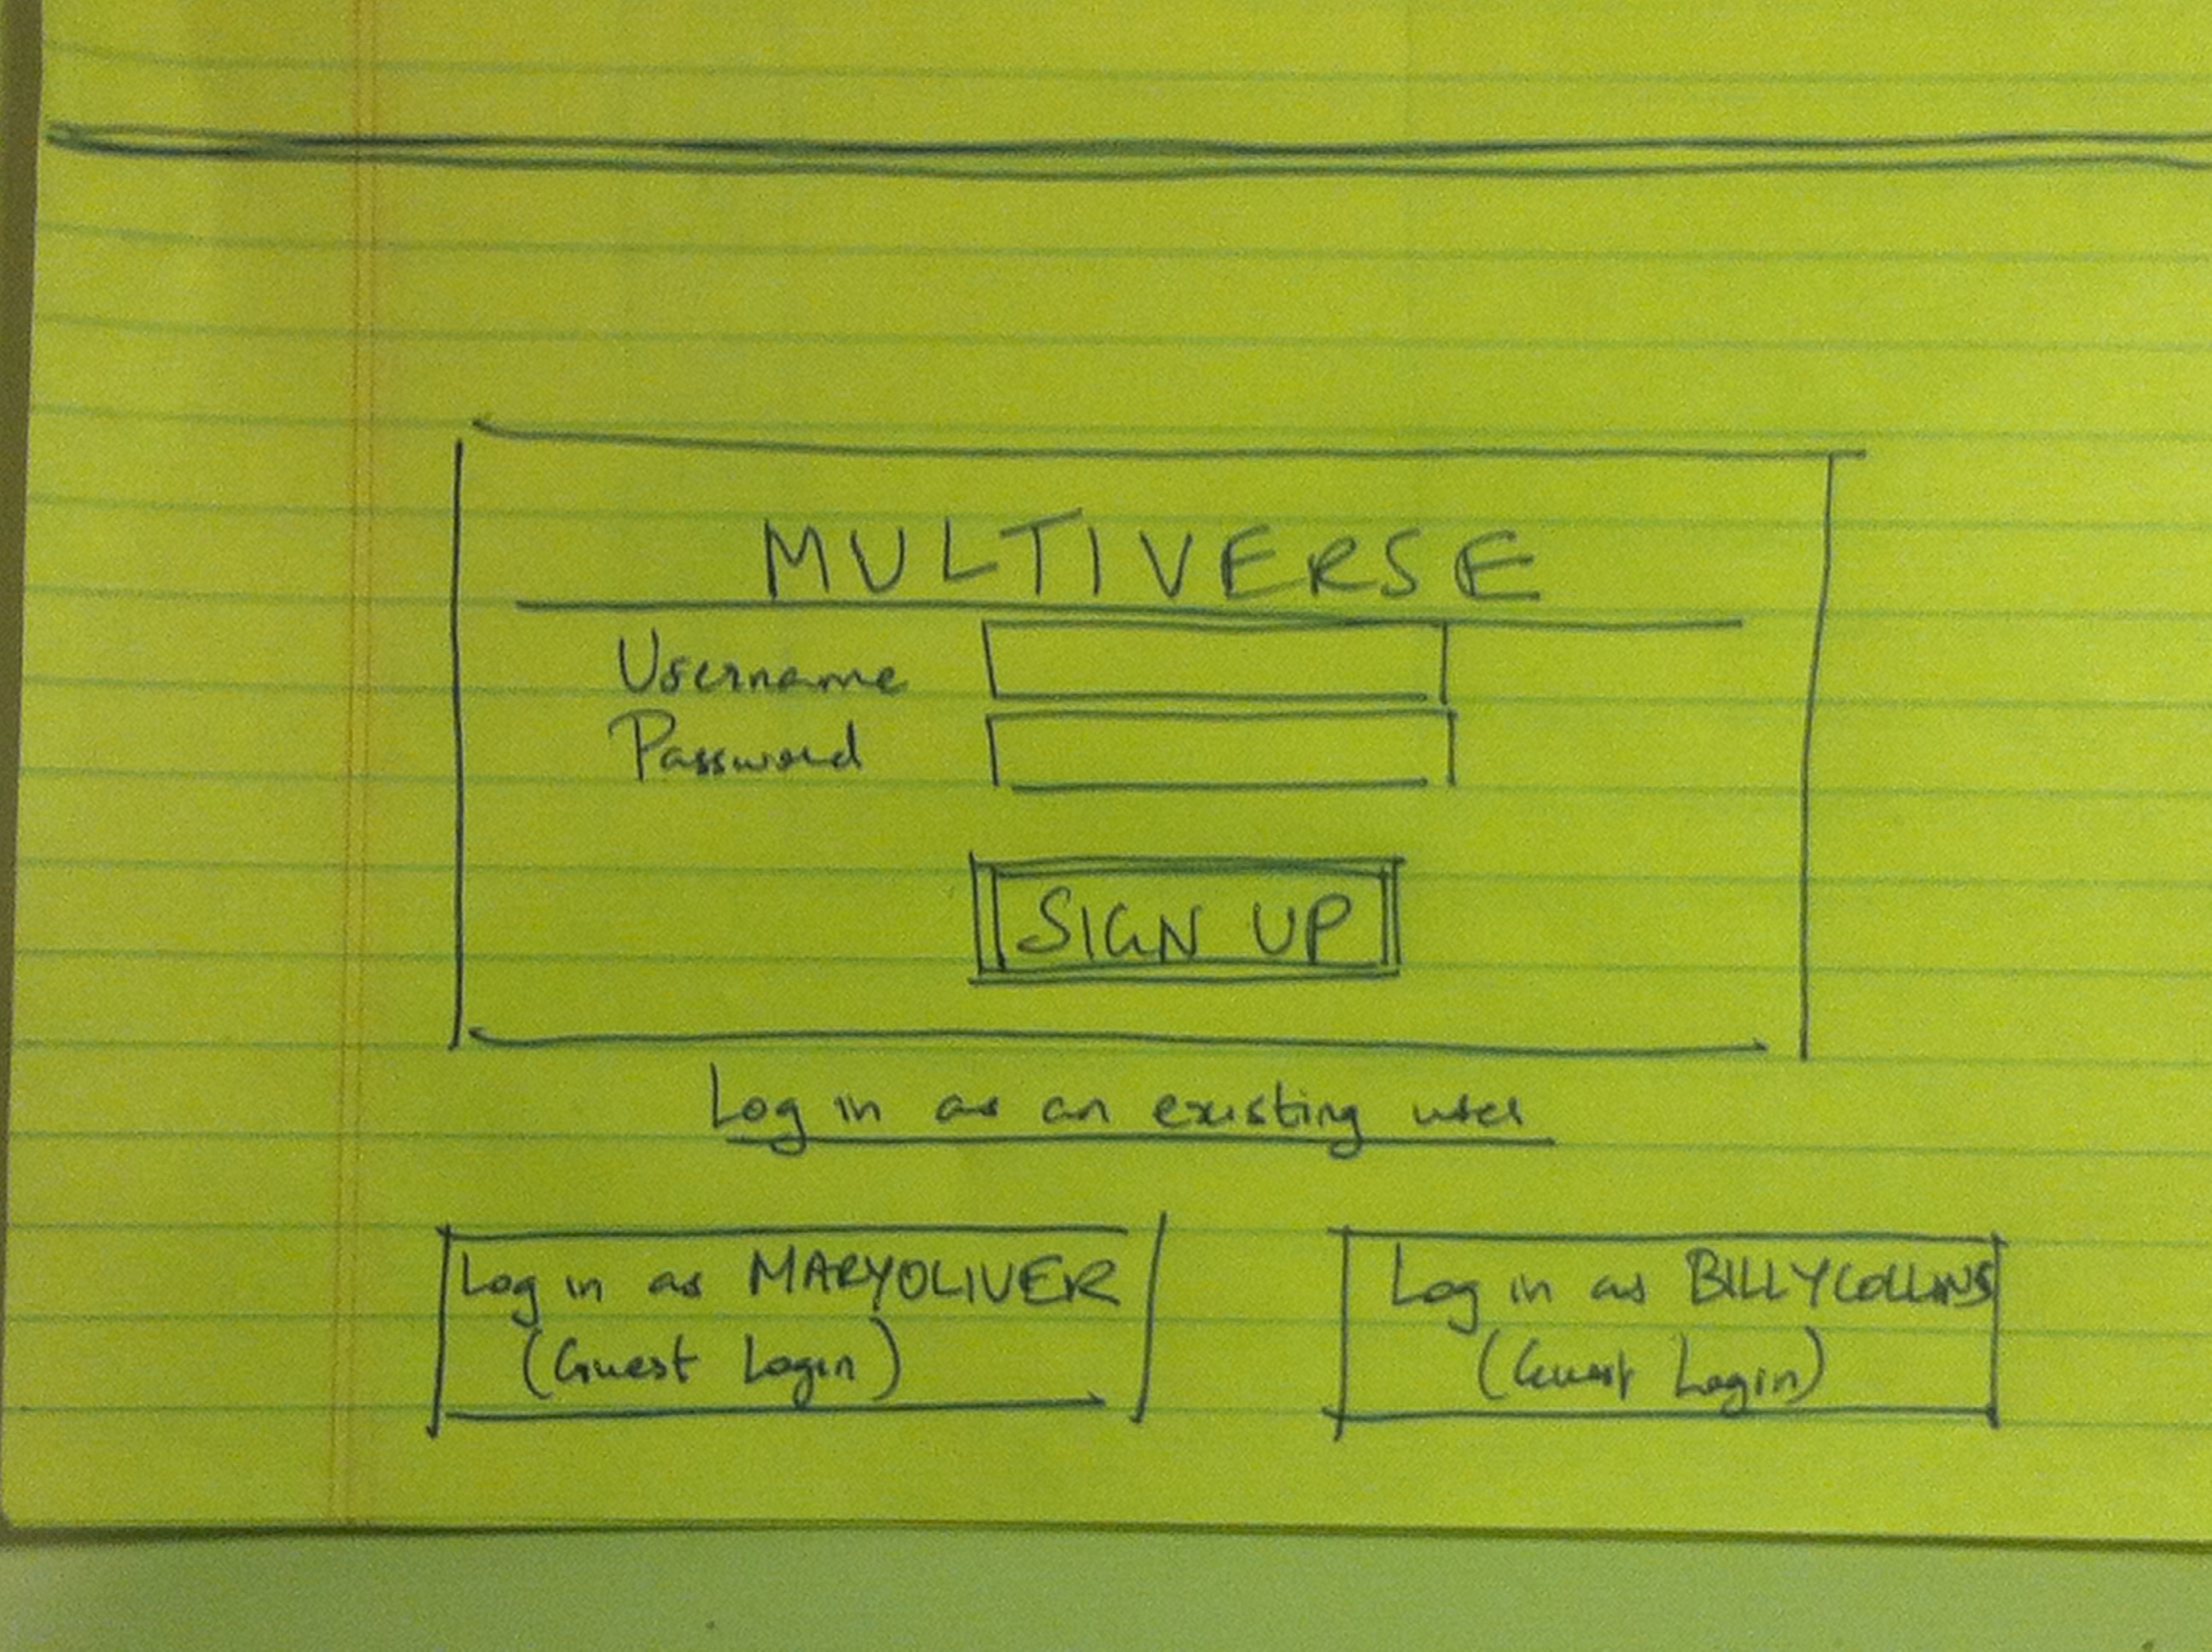 MULTIVERSE
Username
Password
SIGN UP
Log in as an existing user
Log in as MARYOLIVER
(Guest Login)
Log in as BILLYCOLLINS
(Guest Login)